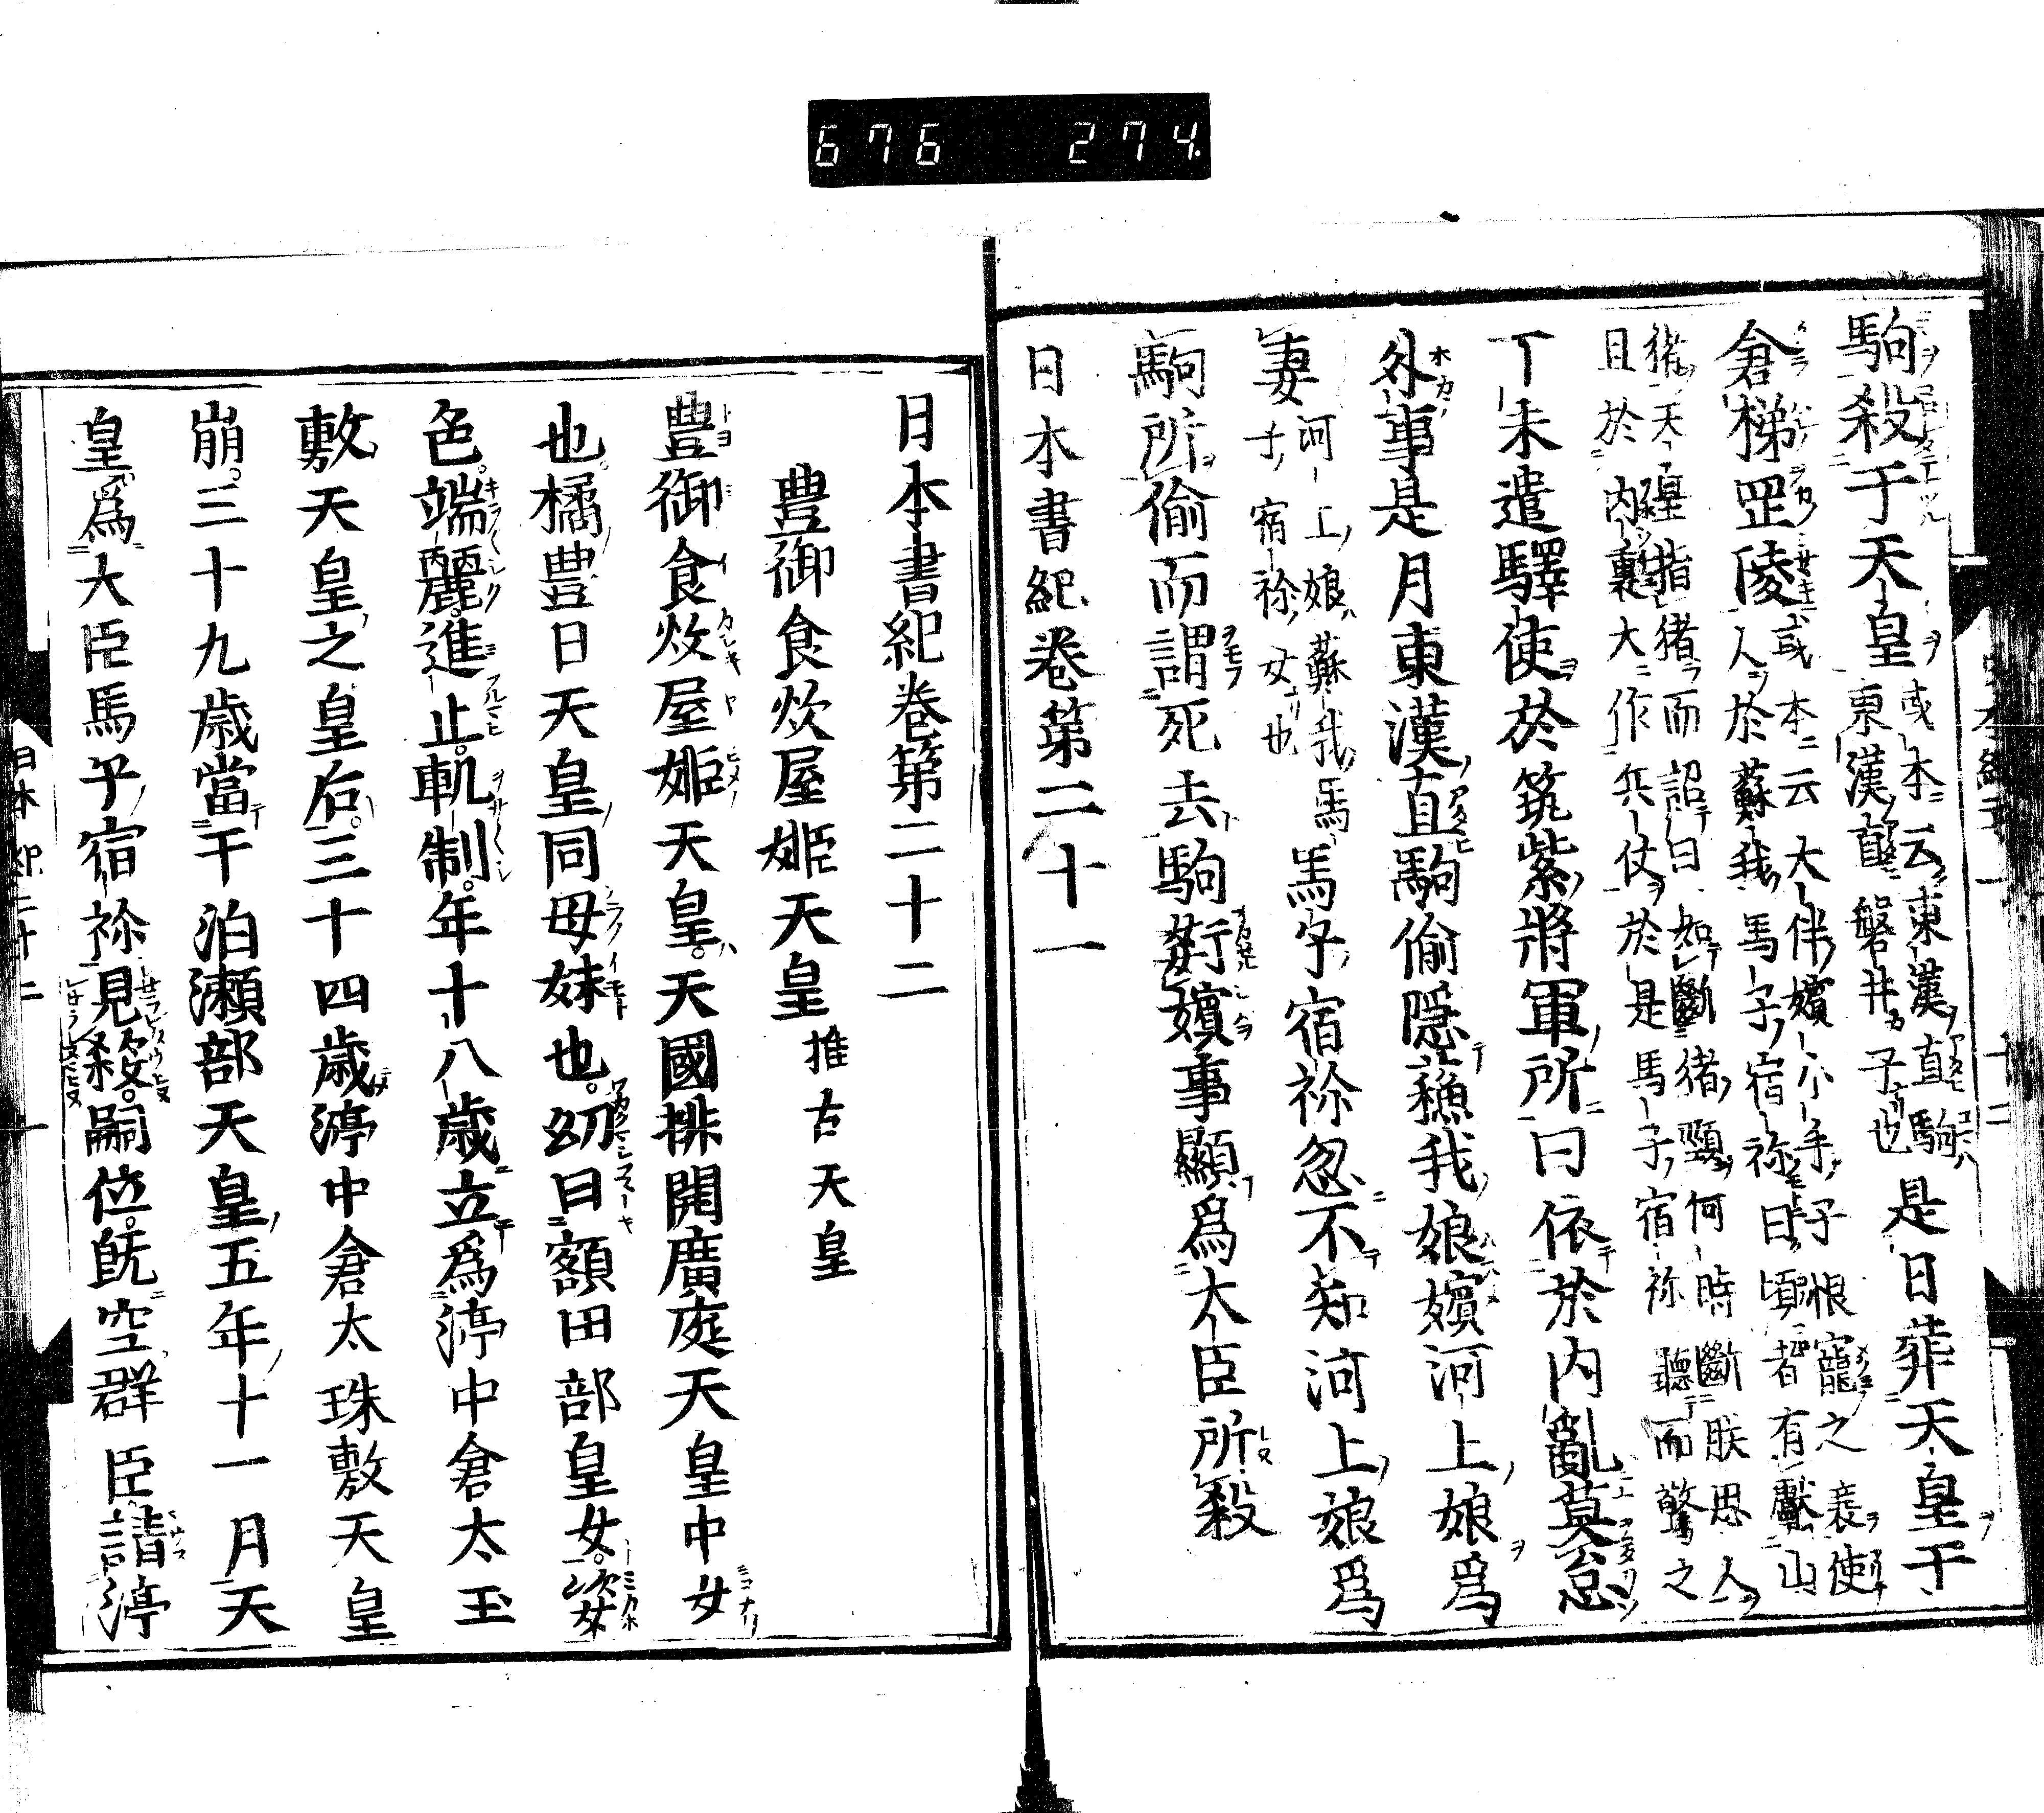 676 274
駒殺于天皇或本云東漢直駒
東漢直磐井子也是日葬天皇于
倉梯罡陵或本云大伴嬪小手子恨寵之衰使
人於蘇我馬子宿祢曰頃者有獻山
猪天皇指猪而詔曰如斷猪頸何時斷朕思人
且於内裏大作兵仗於是馬子宿祢聽而驚之
丁未遣驛使於筑紫將軍所曰依於内亂莫怠
外事是月東漢直駒偷隱蘇我娘嬪河上娘爲
妻河上娘蘇我馬
子宿祢女也馬子宿祢忽不知河上娘爲
駒所偷而謂死去駒奸嬪事顯爲大臣所殺
日本書紀卷第二十一
日本書紀卷第二十二
豊御食炊屋姫天皇 推古天皇
豊御食炊屋姫天皇天國排開廣庭天皇中女
也橘豊日天皇同母妹也幼曰額田部皇女姿
色端麗進止軌制年十八歳立爲渟中倉太玉
敷天皇之皇后三十四歳渟中倉太珠敷天皇
崩三十九歳當于泊瀬部天皇五年十一月天
皇爲大臣馬子宿祢見殺嗣位既空群臣請渟
日本紀二十二 一